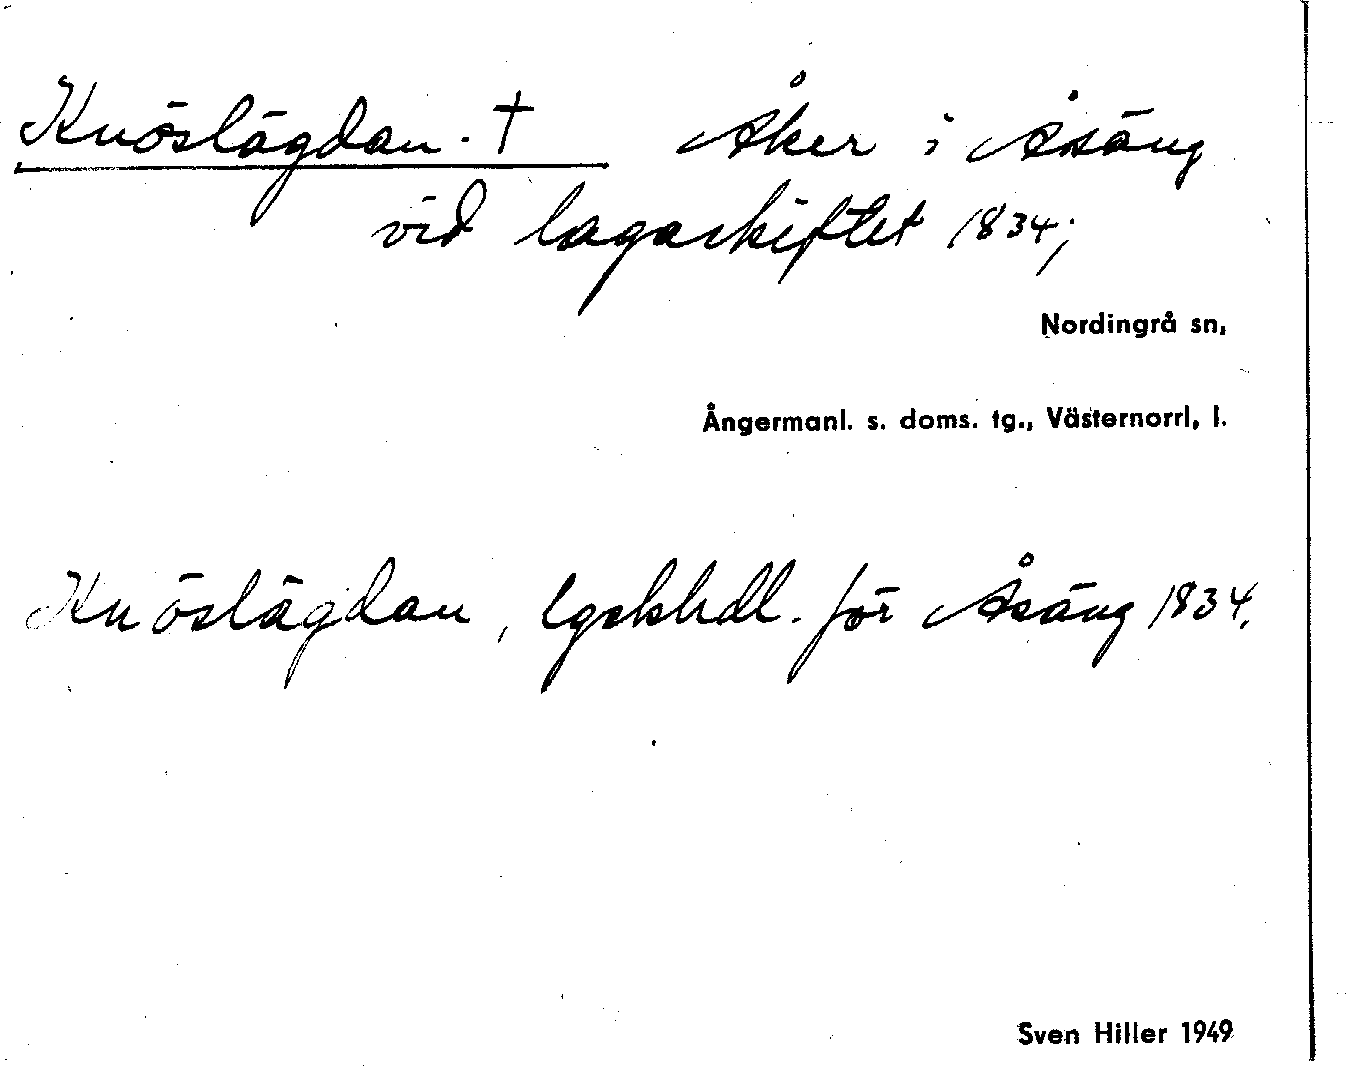 Knöslägdan. † Åker i Åsäng
vid lagaskiftet 1834;
Nordingrå sn,
Ångermanl. s. doms. tg., Västernorrl, l.
Knöslägdan, lgskhdl. för Åsäng 1834.
Sven Hiller 1949